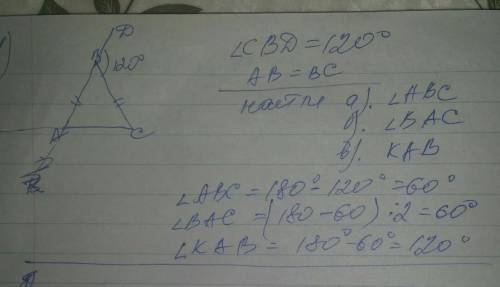 D
B 120°
A C
∠CBD = 120°
AB = BC
найти а). ∠ABC
б). ∠BAC
в). KAB
∠ABC = 180° - 120° = 60°
∠BAC = (180 - 60) : 2 = 60°
∠KAB = 180° - 60° = 120°